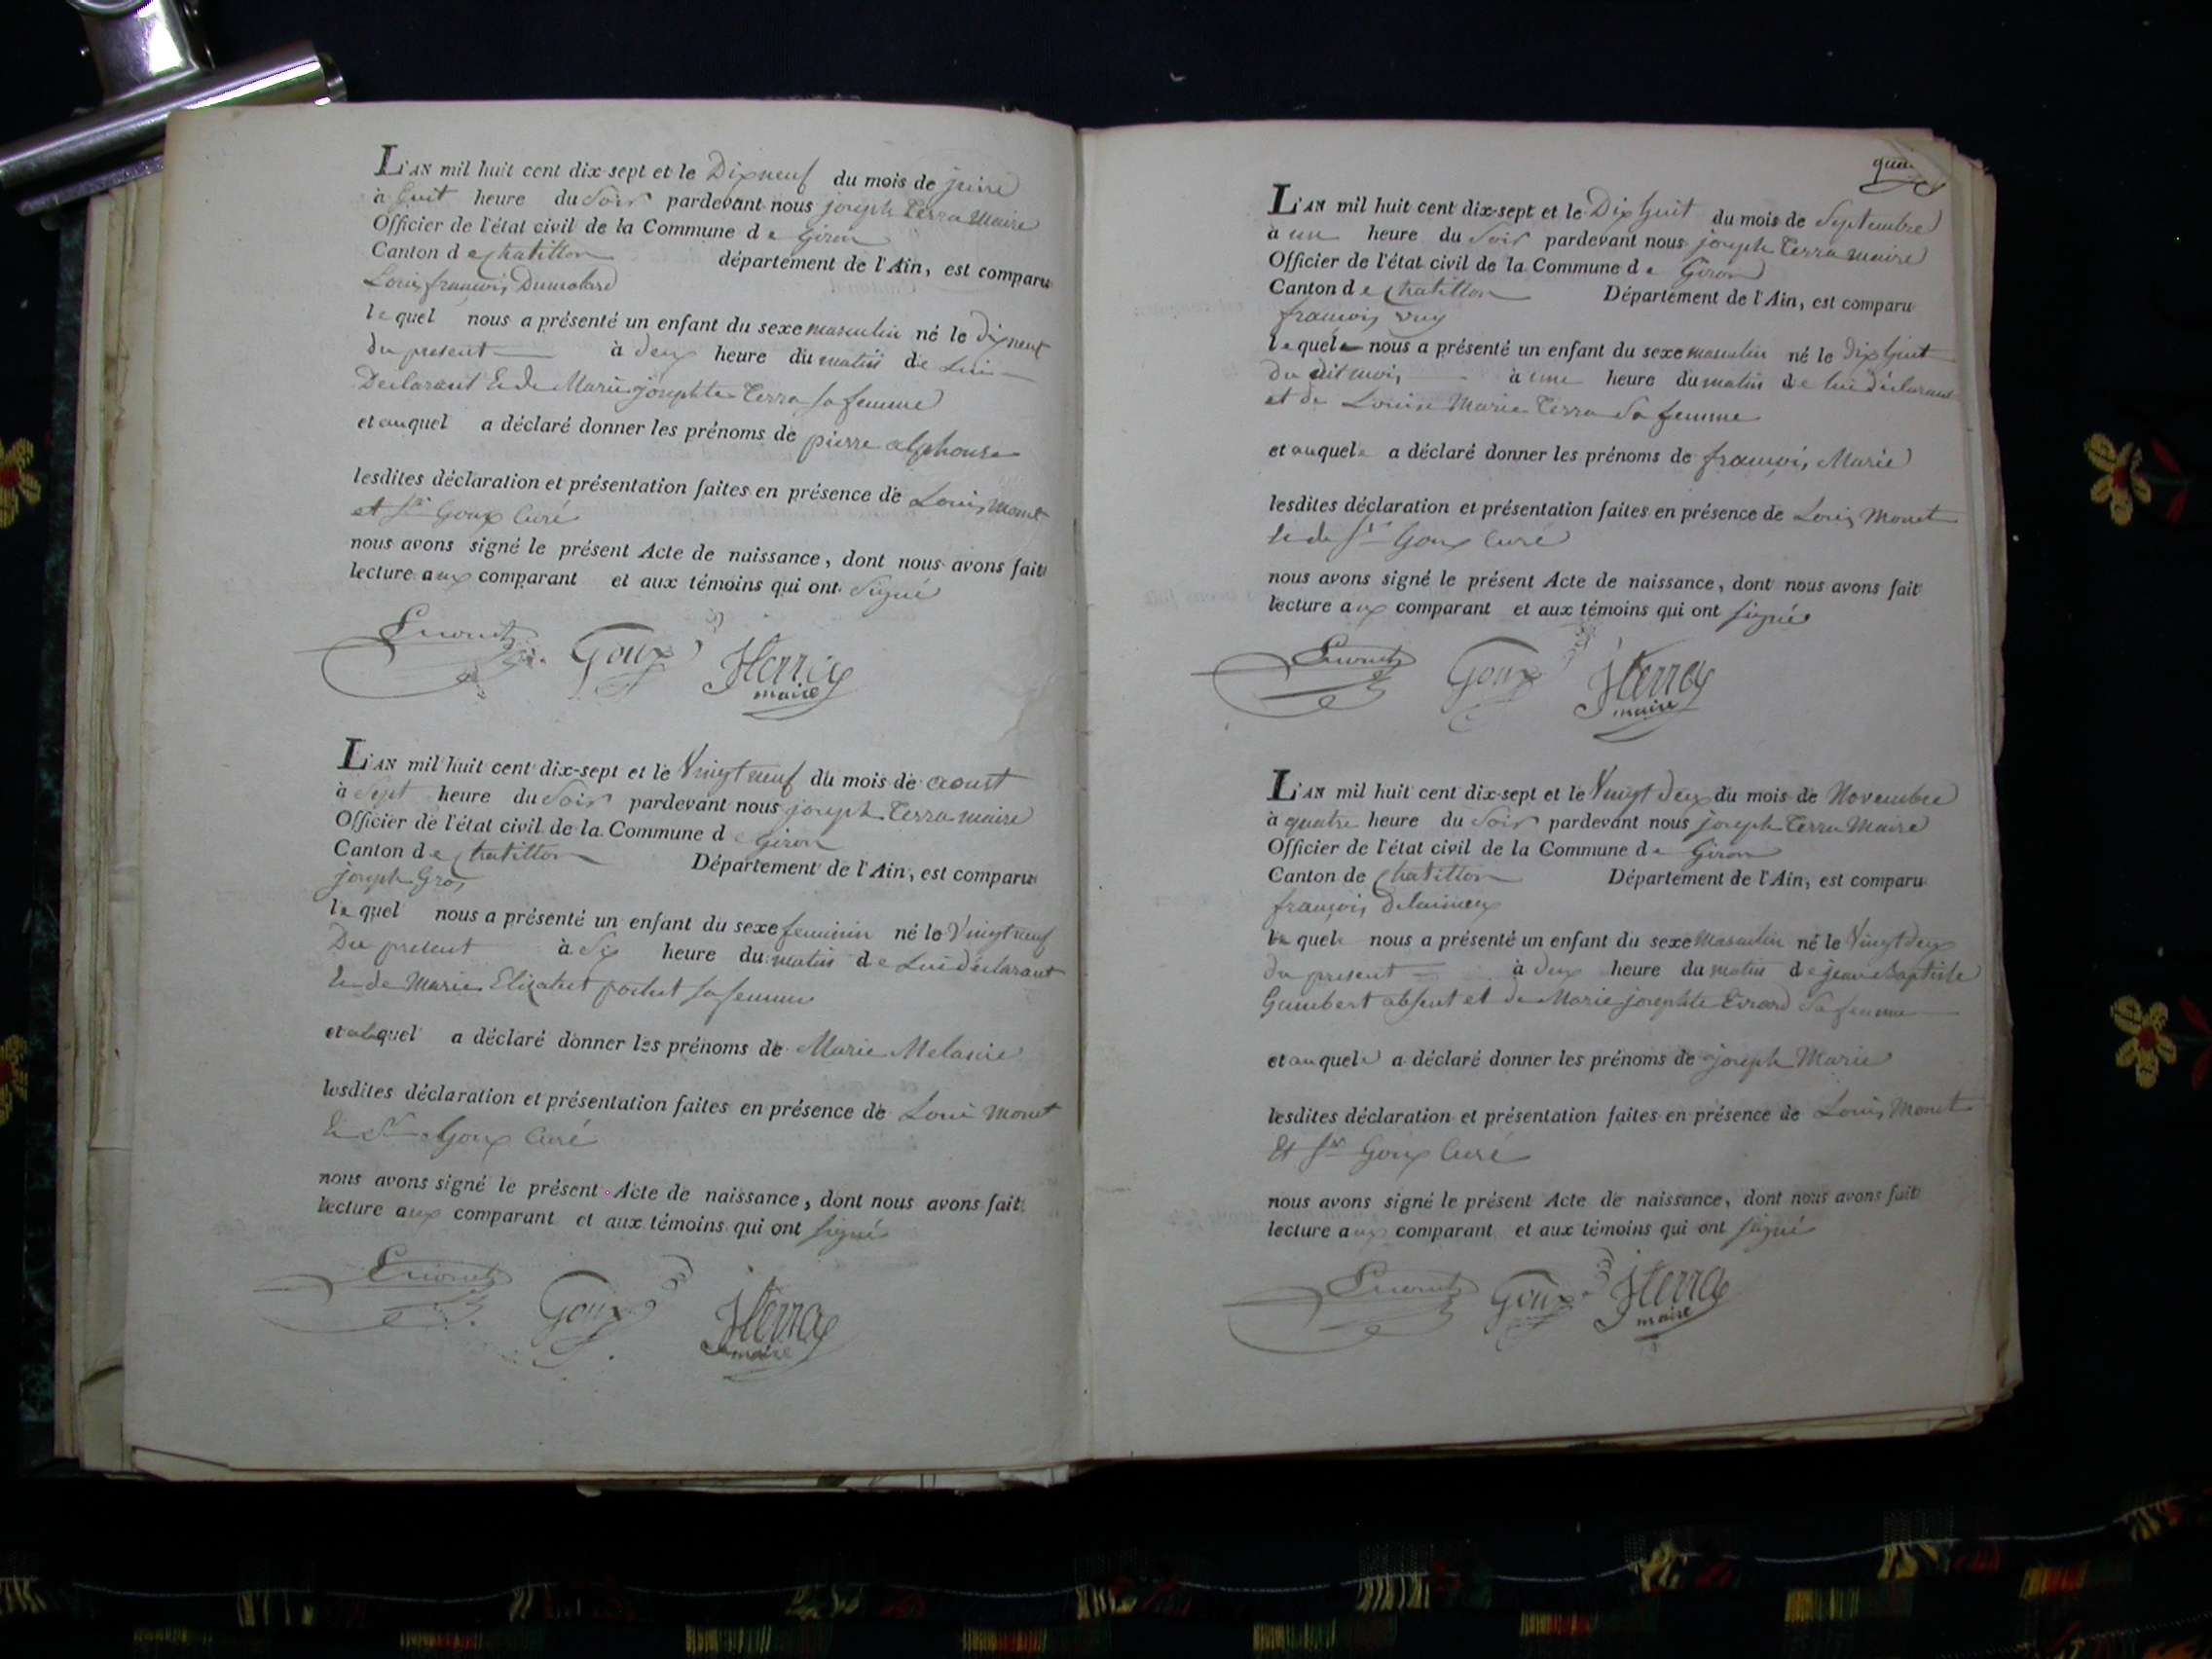 L'AN mil huit cent dix-sept et le Dixneuf du mois de juin
à huit heure du Soir pardevant nous joseph Terra Maire
Officier de l'état civil de la Commune de Giron
Canton de chatillon département de l'Ain, est comparu
Louis françois Dumolard
lequel nous a présenté un enfant du sexe masculin né le dixneuf
du present à deux heure du matin de Lui
Declarant & de Marie josephte Terra sa femme
et auquel a déclaré donner les prénoms de pierre alphonse
lesdites déclaration et présentation faites en présence de Louis Monet
et Sr Goux Curé
nous avons signé le présent Acte de naissance, dont nous avons fait
lecture aux comparant et aux témoins qui ont Signé
Lmonet Goux JTerra
maire
L'AN mil huit cent dix-sept et le Vingt neuf du mois de aoust
à Sept heure du Soir pardevant nous joseph Terra maire
Officier de l'état civil de la Commune de Giron
Canton de chatillon Département de l'Ain, est comparu
joseph Gros
lequel nous a présenté un enfant du sexe feminin né le Vingt neuf
Du present à Six heure du matin de Lui déclarant
& de Marie Elizabet pochet sa femme
et alaquel a déclaré donner les prénoms de Marie Melanie
lesdites déclaration et présentation faites en présence de Loui Monet
& Sr Goux Curé
nous avons signé le présent Acte de naissance, dont nous avons fait
lecture aux comparant et aux témoins qui ont signés
Lmonet Goux JTerra
maire
L'AN mil huit cent dix-sept et le Dix huit du mois de Septembre
à un heure du Soir pardevant nous joseph Terra maire
Officier de l'état civil de la Commune de Giron
Canton de chatillon Département de l'Ain, est comparu
françois
lequel nous a présenté un enfant du sexe masculin né le dix huit
du dit mois à une heure du matin de lui déclarant
et de Louise Marie Terra Sa femme
et auquel a déclaré donner les prénoms de françois Marie
lesdites déclaration et présentation faites en présence de Louis Monet
& de Sr Goux Curé
nous avons signé le présent Acte de naissance, dont nous avons fait
lecture aux comparant et aux témoins qui ont signés
Lmonet Goux JTerra
maire
L'AN mil huit cent dix-sept et le Vingt deux du mois de Novembre
à quatre heure du Soir pardevant nous joseph Terra Maire
Officier de l'état civil de la Commune de Giron
Canton de Chatillon Département de l'Ain, est comparu
françois
lequel nous a présenté un enfant du sexe Masculin né le Vingt deux
du present à deux heure du matin de jean Baptiste
Gumbert absent et de Marie josephte Evrard Sa femme
et auquel a déclaré donner les prénoms de joseph Marie
lesdites déclaration et présentation faites en présence de Louis Monet
Et Sr Goux Curé
nous avons signé le présent Acte de naissance, dont nous avons fait
lecture aux comparant et aux témoins qui ont signé
Lmonet Goux JTerra
maire